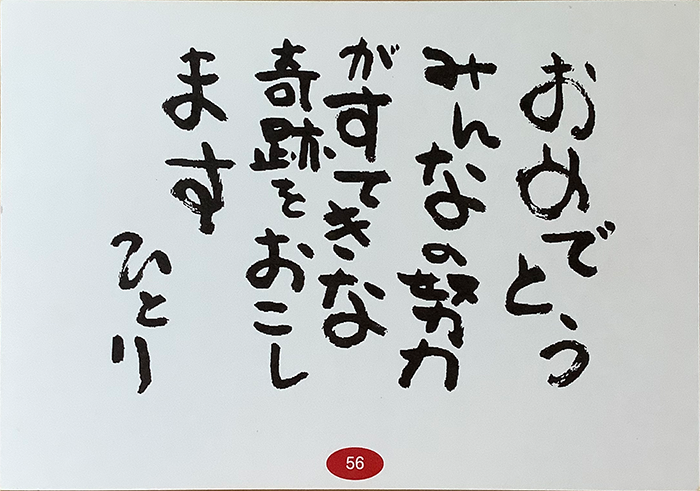 おめでとう
みんなの努力
がすてきな
奇跡をおこし
ます
ひとり
56